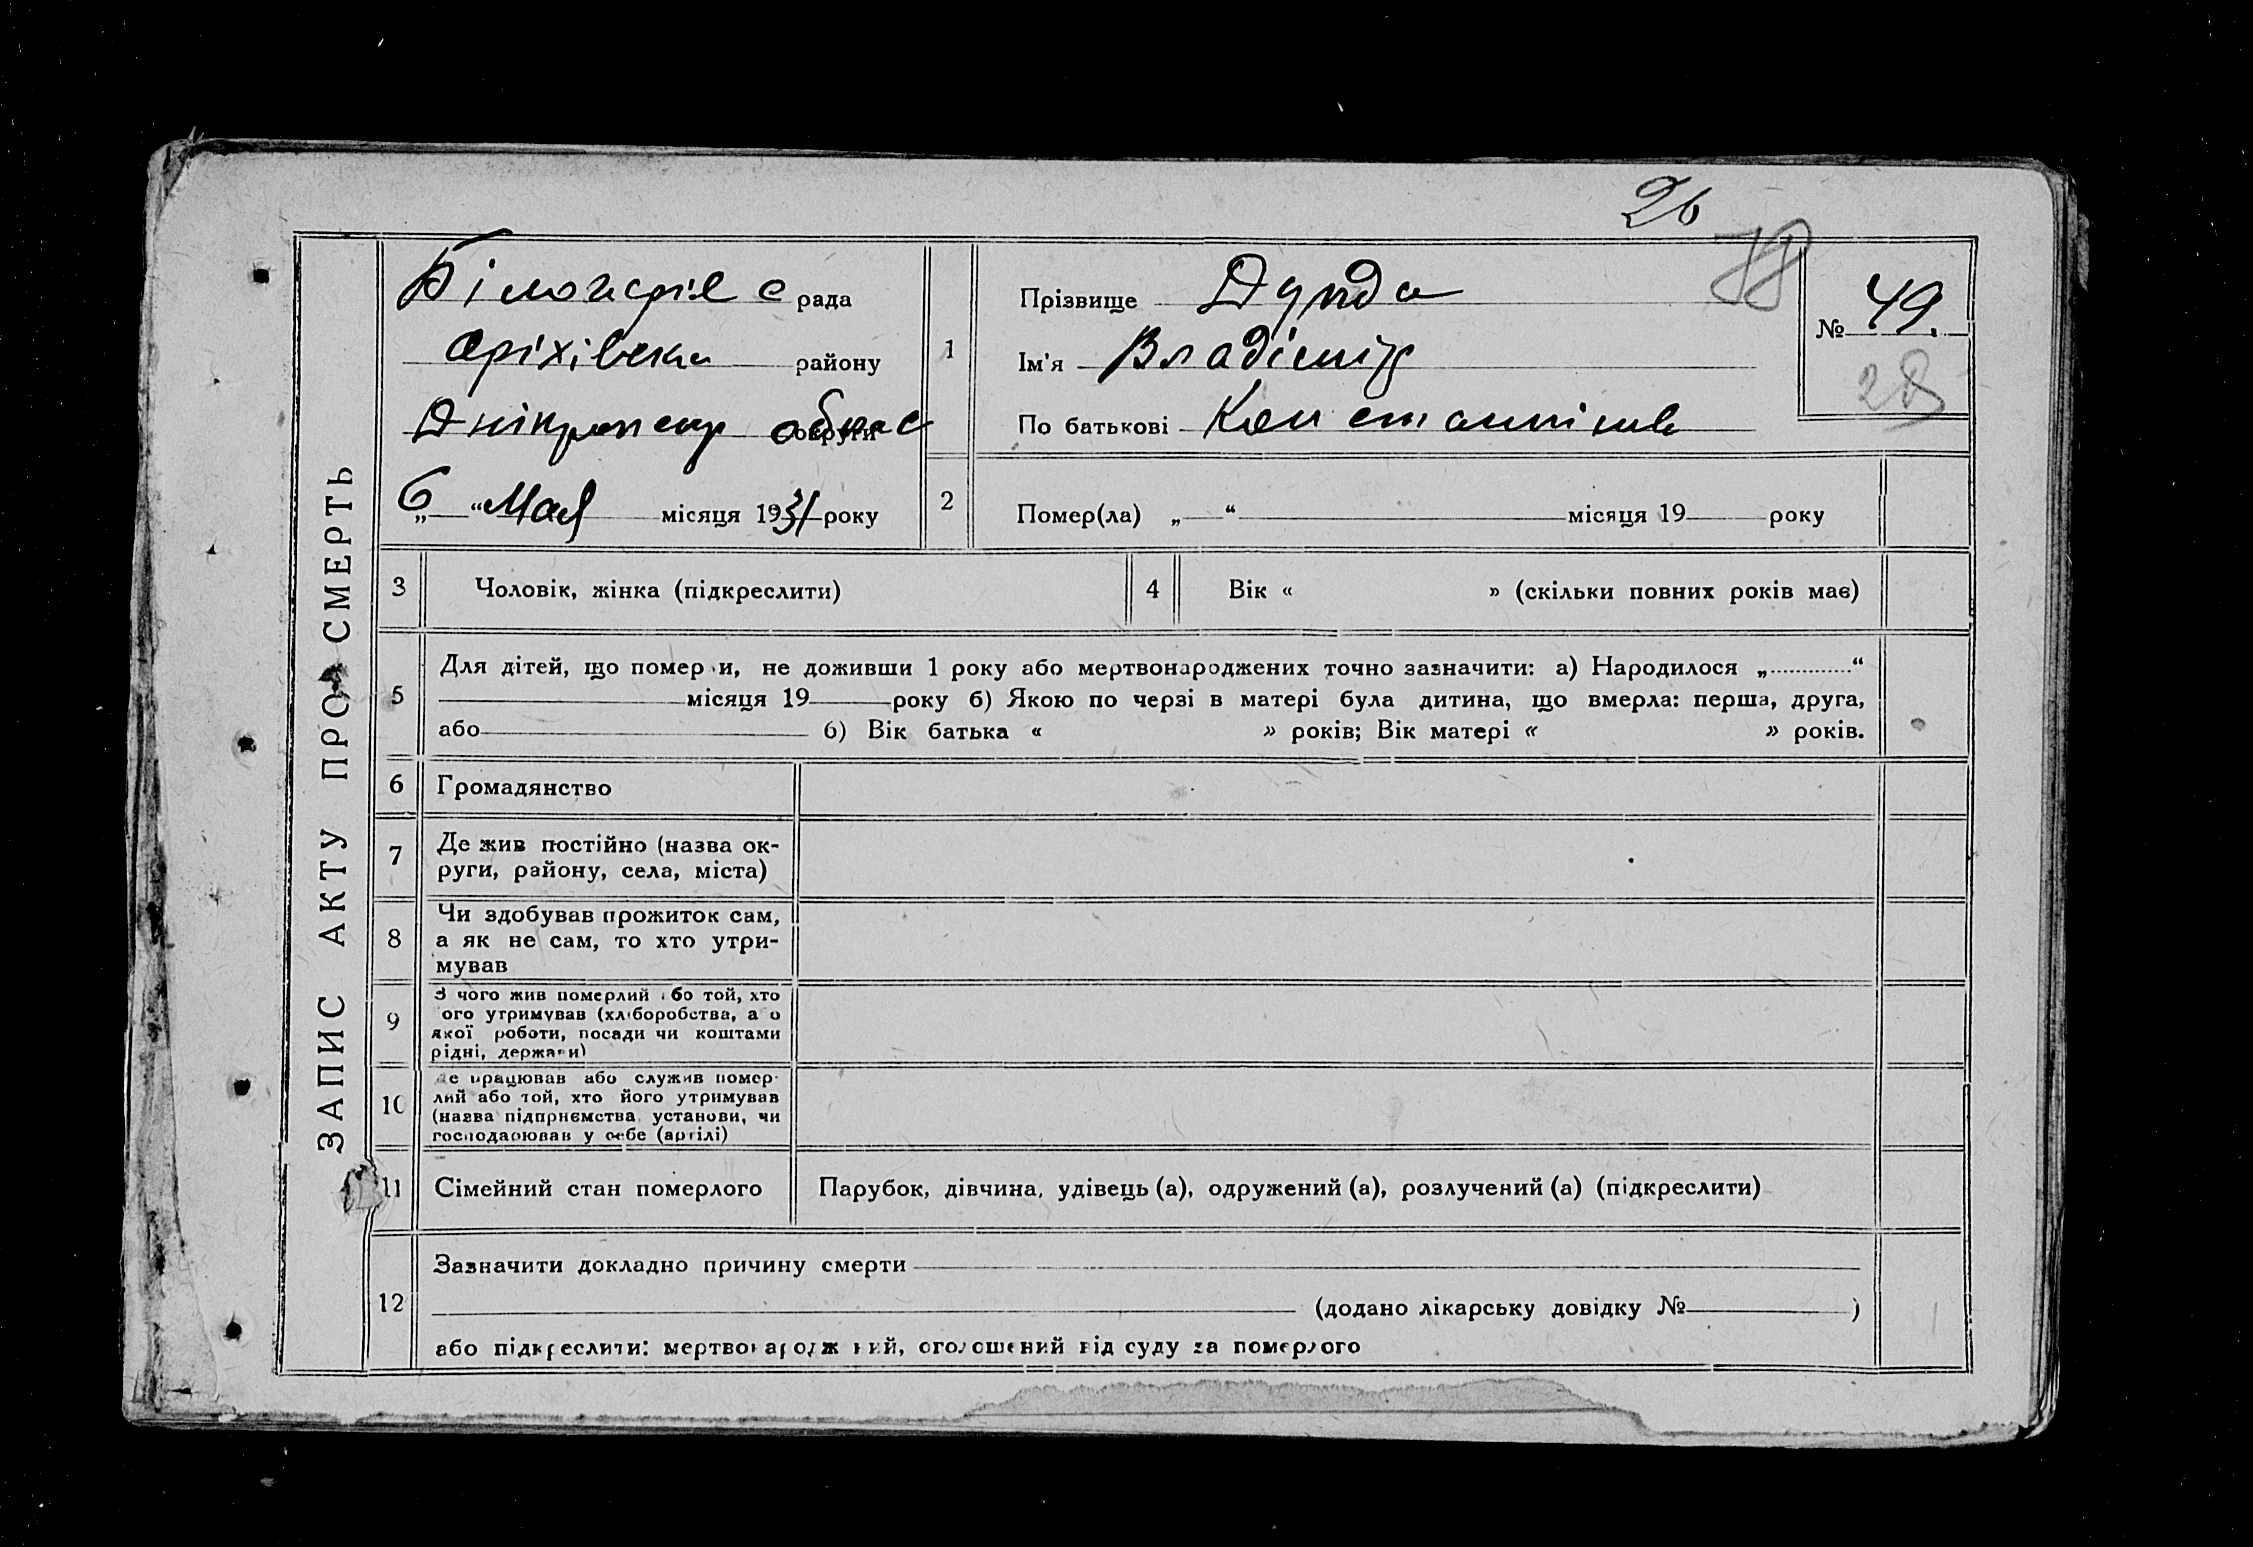 26
ЗАПИС АКТУ ПРО СМЕРТЬ
рада
Оріхівськ району
округи област
6 „ “ Мая місяця 1931 року
1
Прізвище Дунда
Ім'я Владімір
По батькові Константінов
№ 49.
28
2
Помер(ла) „ “ місяця 19 року
3 Чоловік, жінка (підкреслити)
4 Вік « » (скільки повних років має)
5
Для дітей, що померли, не доживши 1 року або мертвонароджених точно зазначити: а) Народилося „ “
місяця 19 року б) Якою по черзі в матері була дитина, що вмерла: перша, друга,
або б) Вік батька « » років; Вік матері « » років.
6 Громадянство
7
Де жив постійно (назва ок-
руги, району, села, міста)
8
Чи здобував прожиток сам,
а як не сам, то хто утри-
мував
9
З чого жив померлий або той, хто
ого утримував (хліборобства, а о
якої роботи, посади чи коштами
рідні, держави)
10
Де працював або служив помер-
лий або той, хто його утримував
(назва підприємства, установи, чи
господарював у себе (артілі)
11 Сімейний стан померлого
Парубок, дівчина, удівець (а), одружений (а), розлучений (а) (підкреслити)
12
Зазначити докладно причину смерти
(додано лікарську довідку № )
або підкреслити: мертвонароджений, оголошений від суду за померлого